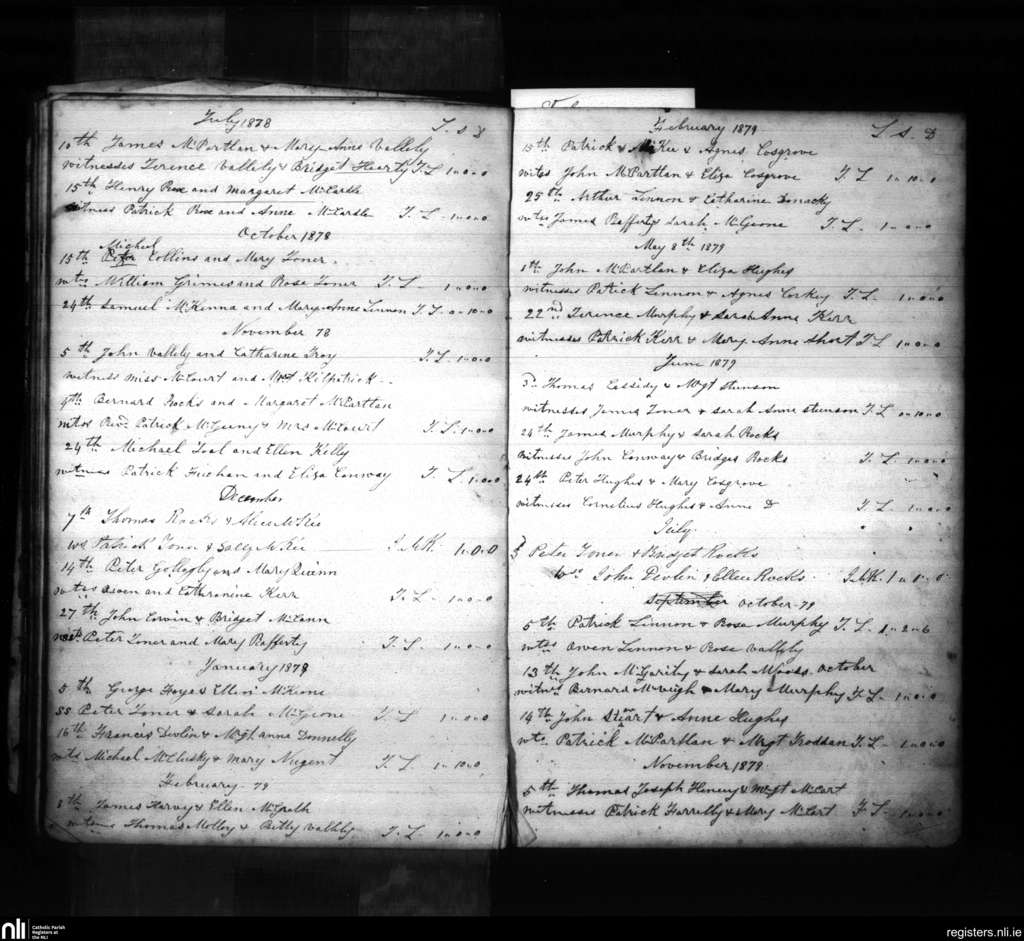 July 1878
L s D
10th James McPartlan & Mary Anne Vallely
witnesses Terence Vallely & Bridget Hearty T L 1 " 0 " 0
15th Henry Rox and Margaret McCardle
witness Patrick Rox and Anne McCardle T. L - 1 " 0 " 0
October 1878
Michael
15th Peter Collins and Mary Toner.
wts William Grimes and Rosa Toner T L - 1 " 0 " 0
24th Samuel McKenna and Mary Anne Lennon T L 0 " 10 " 0
November 78
5th John Vallely and Catharine Troy T. L. 1 " 0 " 0
witness miss McCourt and Kilpatrick
9th Bernard Rocks and Margaret McPartlan
wites Revd Patrick McGeeney & Mrs McCourt T. L. 1 " 0 " 0
24th Michael Toal and Ellen Kelly
witness Patrick and Eliza Conway T. L. 1 " 0 " 0
December
7th Thomas Rocks & Alice McKee
ws Patrick Toner & Sally McKee J. McK. 1 " 0 " 0
14th Peter Gollogly and Mary Quinn
wtes Owen and Catharine Kerr T. L - 1 " 0 " 0
27th John Corvin & Bridget McCann
Peter Toner and Mary Rafferty T. L. - 1 " 0 " 0
January 1879
5th George Hayes & Ellen McKeone
ss Peter Toner & Sarah McGeone T L - 1 " 0 " 0
16th Francis Devlin & Mgt anne Donnelly
wts Michael McClusky & Mary Nugent T. L. 1 " 10 " 0
February - 79
8th James Harvey & Ellen McGrath
witness Thomas Molloy & Betty Vallely T. L - 1 " 0 " 0
February 1879
L s. D
15th Patrick McKee & Agnes Cosgrove
wites John McPartlan & Eliza Cosgrove T L 1 " 10 " 0
25th Arthur Lennon & Catharine Donachy
wtes James Rafferty & Sarah McGeone T L - 1 " 0 " 0
May 8th 1879
1th John McPartlan & Eliza Hughes
witnesses Patrick Lennon & Agnes Corkey T L - 1 " 0 " 0
22nd Terence Murphy & Sarah Anne Kerr
witnesses Patrick Kerr & Mary Anne Short T L 1 " 0 " 0
June 1879
3rd Thomas Cassidy & Mgt Stunson
witnesses James Toner & Sarah Anne Stunson T L 0 " 10 " 0
24th James Murphy & Sarah Rocks
witnesses John Conway & Bridget Rocks T L - 1 " 0 " 0
24th Peter Hughes & Mary Cosgrove
witnesses Cornelius Hughes & Anne D T L - 1 " 0 " 0
July.
3 Peter Toner & Bridget Rocks
ws John Devlin & Ellen Rocks. J. McK. 1 " 0
September October - 79
5th Patrick Lennon & Rose Murphy T. L 1 " 2 " 6
wtes Owen Lennon & Rose Vallely
13th John McGarity & Sarah Woods October
witns Bernard McVeigh & Mary Murphy T L - 1 " 0 " 0
14th John Stuart & Anne Hughes
wts Patrick McPartlan & Mrgt Hoddan T L - 1 " 0 " 0
November 1879
5th Thomas Joseph Henery & Mgt McCart
witnesses Patrick Farrelly & Mary McCart T L - 1 " 0 " 0
nli Catholic Parish Registers at the NLI
registers.nli.ie